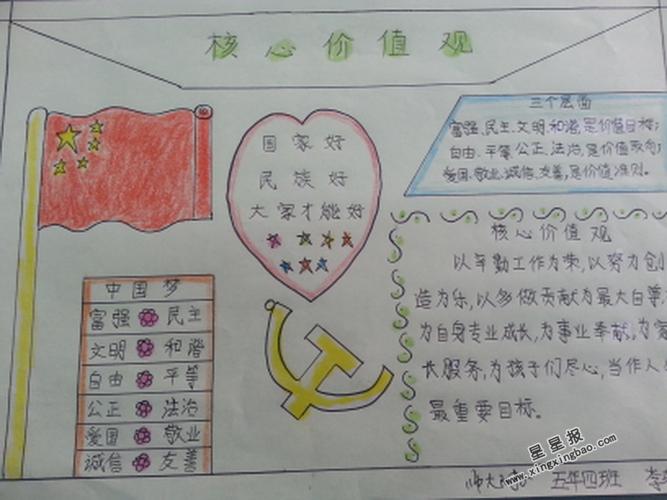 核心价值观
国家好
民族好
大家才能好
三个层面
富强、民主、文明、和谐,是价值目标;
自由、平等、公正、法治,是价值取向
爱国、敬业、诚信、友善,是价值准则。
中国梦
富强 民主
文明 和谐
自由 平等
公正 法治
爱国 敬业
诚信 友善
核心价值观
以辛勤工作为荣,以努力创
造为乐,以多做贡献为最大自
为自身专业成长,为事业奉献,为家
长服务,为孩子们尽心,当作人
最重要目标。
五年四班 李
星星报
www.xingxingbao.com